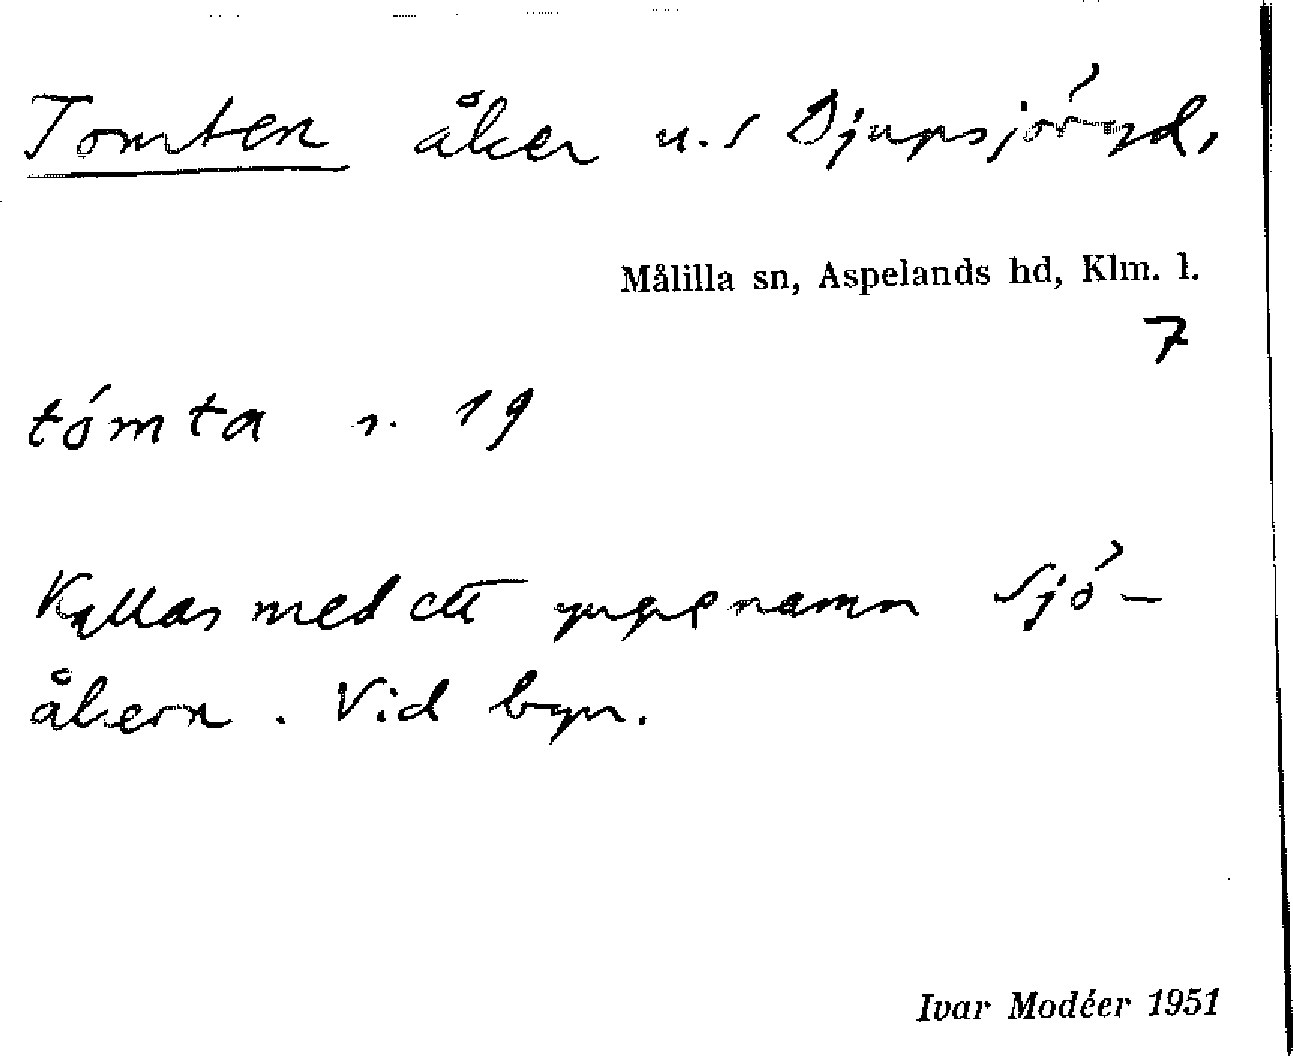 Tomten åker u. / Djupsjö
Målilla sn, Aspelands hd, Klm. l.
7
tómta s. 19
Kallas med ett yngre namn Sjö-
åkern. Vid byn.
Ivar Modéer 1951